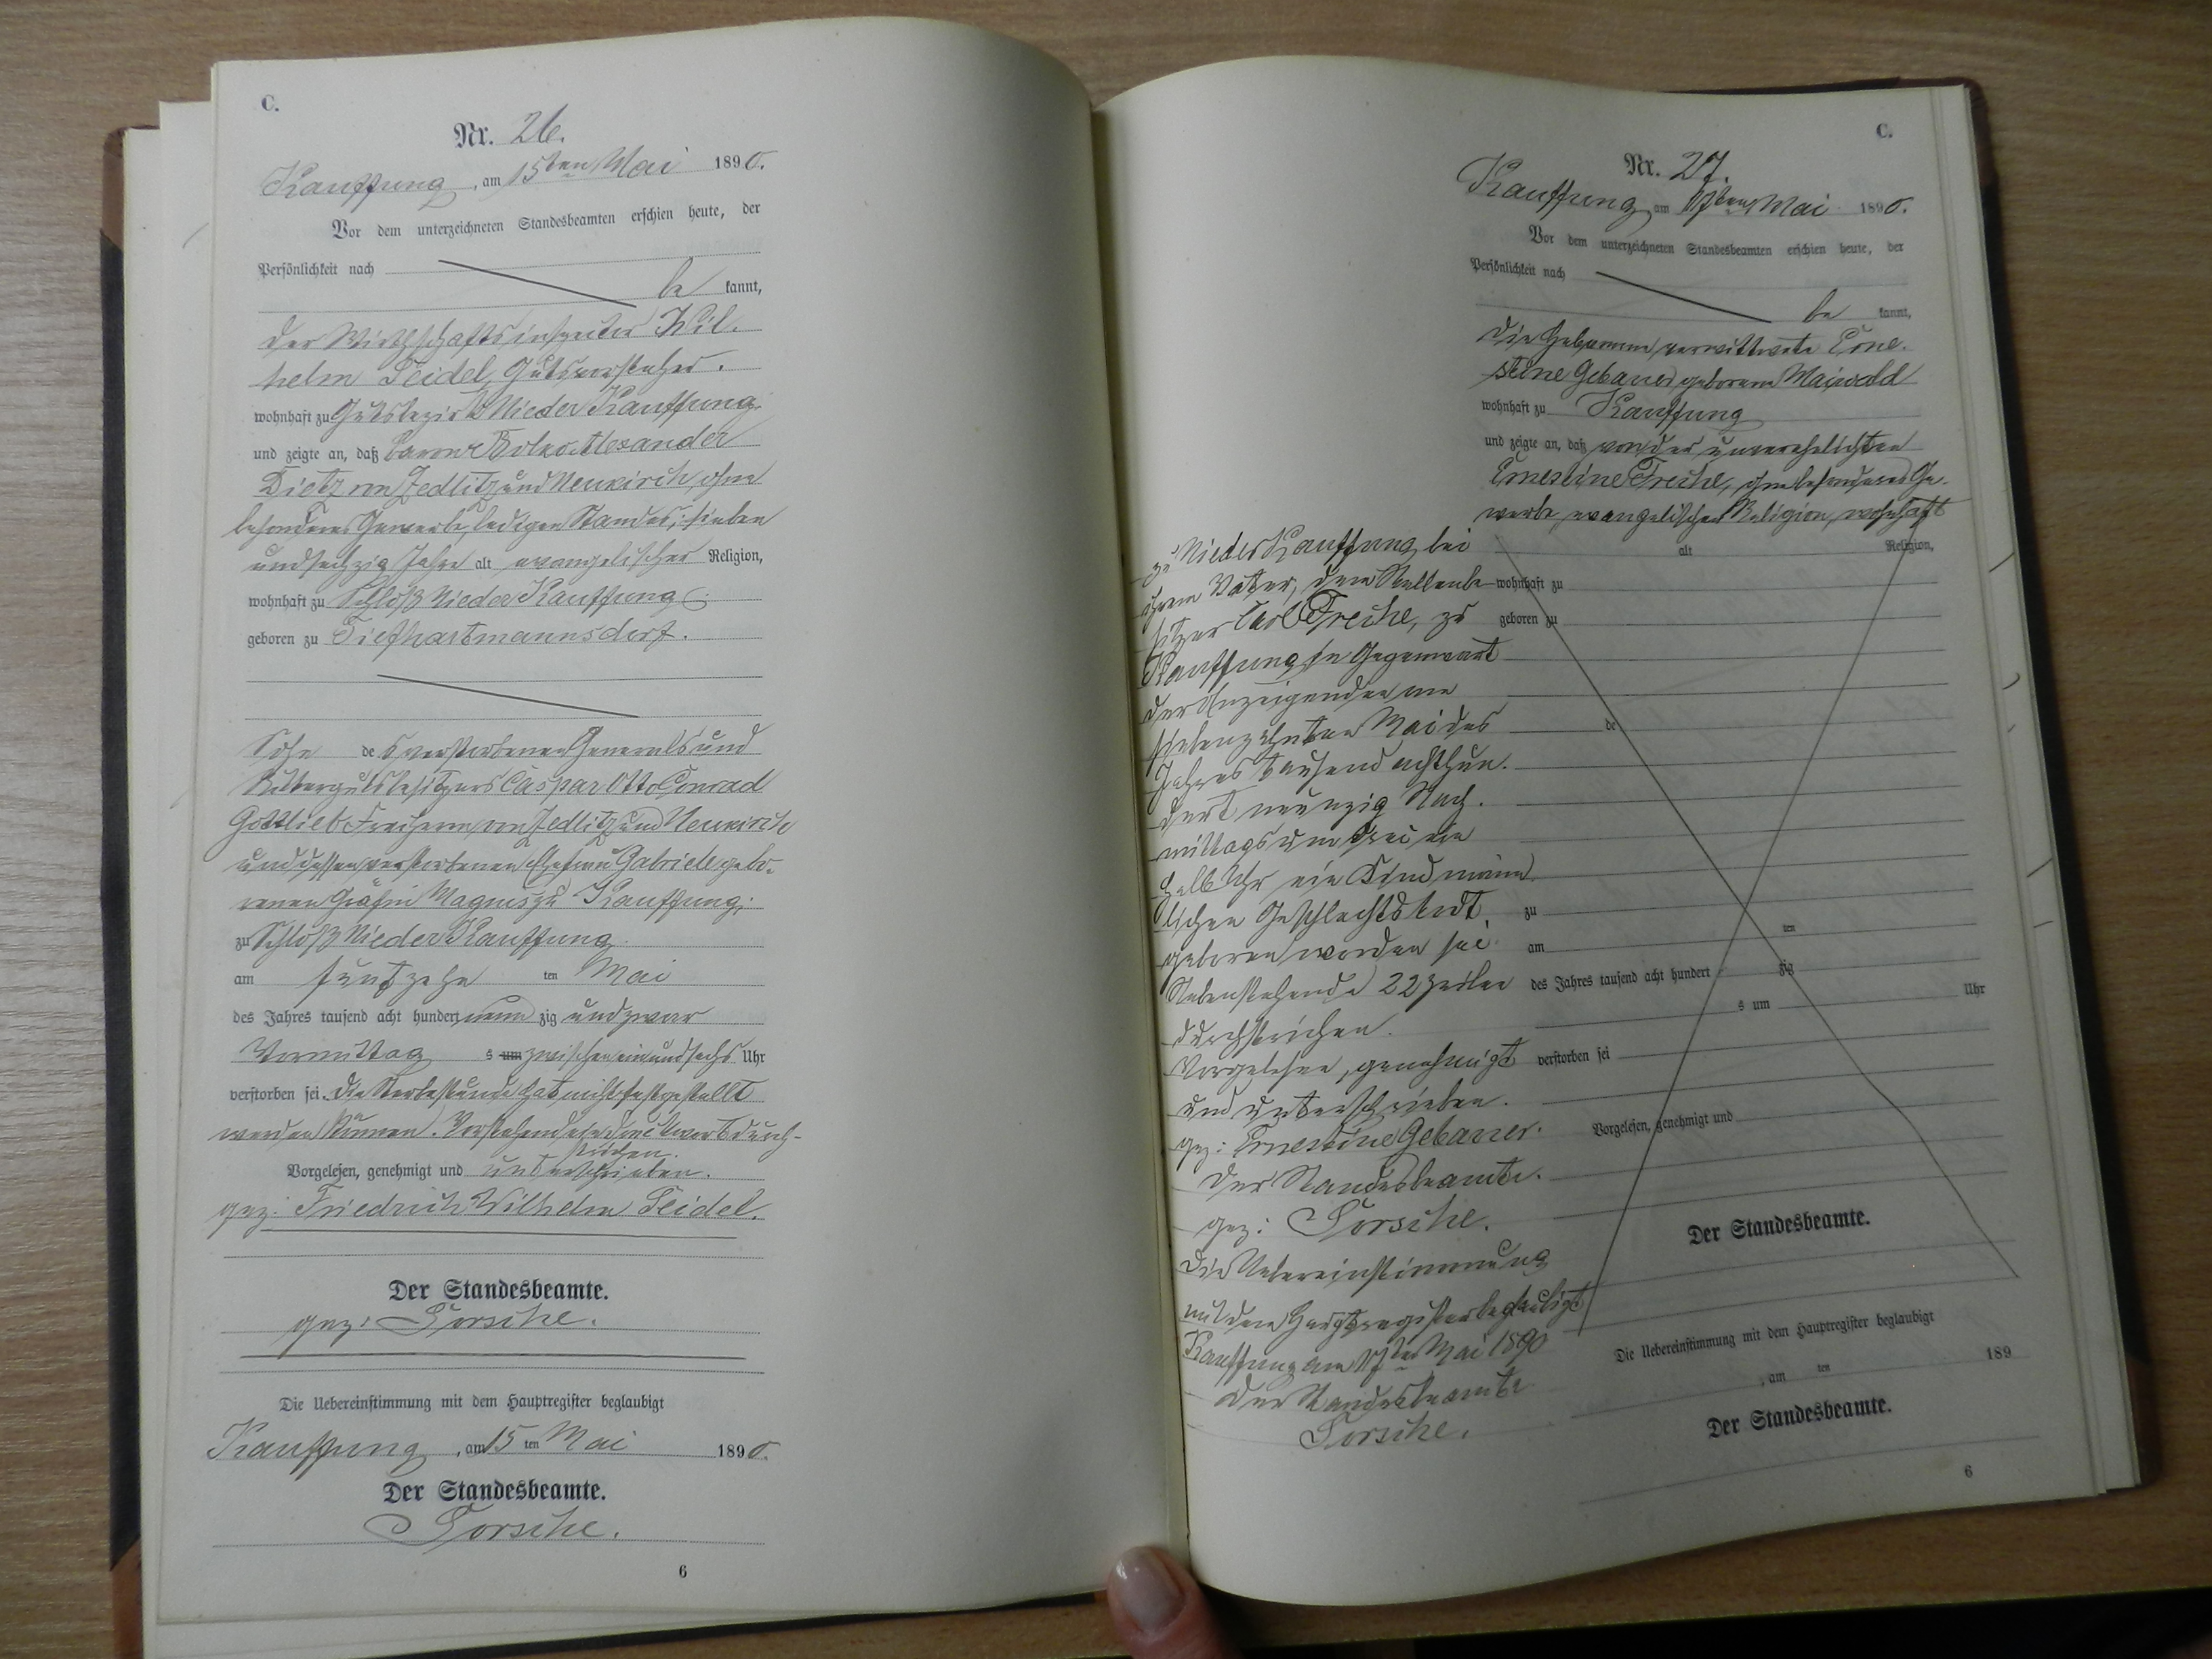 C.
Nr. 26.
Kauffung, am 15ten Mai 1890.
Vor dem unterzeichneten Standesbeamten erschien heute, der
Persönlichkeit nach
be kannt,
der Wirthschaftsinspector Wil-
helm Seidel, Gutsvorsteher.
wohnhaft zu Gutsbezirk Nieder Kauffung,
und zeigte an, daß Baron Bolko Alexander
Dietz von Zedlitz und Neukirch, ohne
besonderes Gewerbe, ledigen Standes, sieben
und sechzig Jahre alt evangelischer Religion,
wohnhaft zu Schloß Nieder Kauffung
geboren zu Tiefhartmannsdorf.
Sohn des verstorbenen Generals und
Rittergutsbesitzers Caspar Otto Conrad
Gottlieb Freiherrn von Zedlitz und Neukirch
und dessen verstorbenen Ehefrau Gabriele gebo-
renen Gräfin Magnis zu Kauffung,
zu Schloß Nieder Kauffung
am fünfzehn ten Mai
des Jahres tausend acht hundert neun zig und zwar
Vormittag s um zwischen ein und sechs Uhr
verstorben sei. Die Sterbestunde hat nicht festgestellt
werden können. Vorstehend ein Druckwort durch-
strichen.
Vorgelesen, genehmigt und unterschrieben.
gez: Friedrich Wilhelm Seidel.
Der Standesbeamte.
gez: Torsche.
Die Uebereinstimmung mit dem Hauptregister beglaubigt
Kauffung, am 15 ten Mai 1890.
Der Standesbeamte.
Torsche.
6
C.
Nr. 27.
Kauffung am 17ten Mai 1890.
Vor dem unterzeichneten Standesbeamten erschien heute, der
Persönlichkeit nach
be kannt,
die Hebamme verwittwete Erne-
stine Gebauer geborene Maiwald
wohnhaft zu Kauffung
und zeigte an, daß von der unverehelichten
Ernestine Freche, ohne besonderes Ge-
werbe, evangelischer Religion, wohnhaft
zu Nieder Kauffung bei
ihrem Vater, dem Stellenbe-
sitzer Carl Freche, zu
Kauffung in Gegenwart
der Anzeigenden am
siebenzehnten Mai des
Jahres tausend achthun-
dert neunzig Nach-
mittags um drei ein
halb Uhr ein Kind männ-
lichen Geschlechts todt
geboren worden sei.
Nebenstehende 22 Zeilen
durchstrichen.
Vorgelesen, genehmigt
und unterschrieben.
gez: Ernestine Gebauer.
Der Standesbeamte.
gez: Torsche.
Die Uebereinstimmung
mit dem Hauptregister beglaubigt
Kauffung am 17ten Mai 1890
Der Standesbeamte
Torsche.
alt Religion,
wohnhaft zu
geboren zu
de
zu
am ten
des Jahres tausend acht hundert zig
s um Uhr
verstorben sei
Vorgelesen, genehmigt und
Der Standesbeamte.
Die Uebereinstimmung mit dem Hauptregister beglaubigt
, am ten 189
Der Standesbeamte.
6